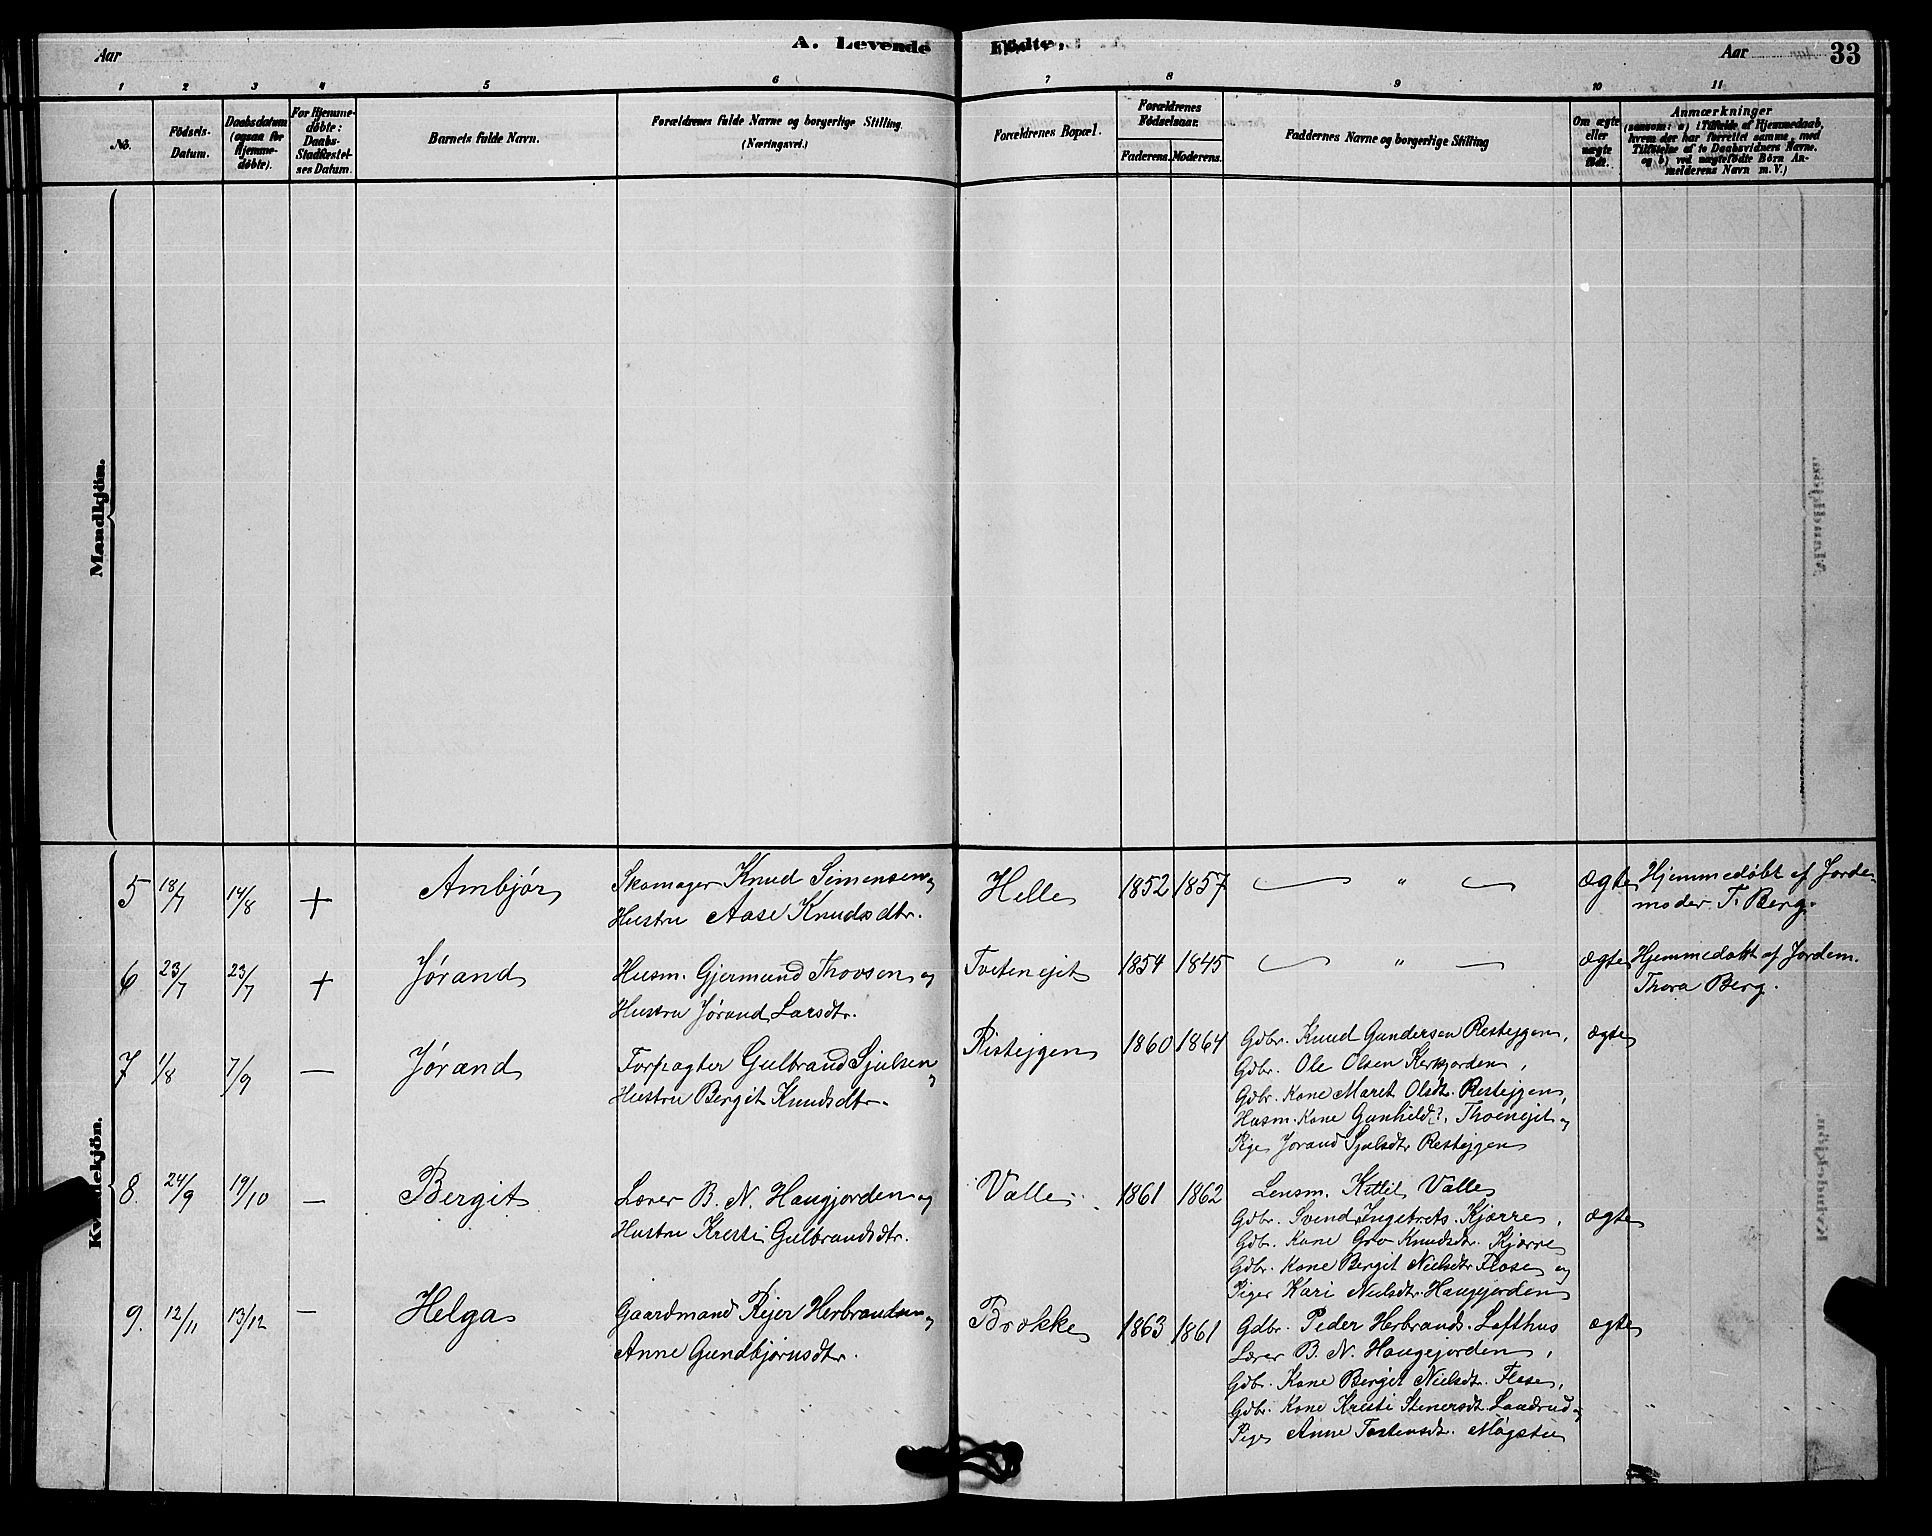 Aar
A. Levende Fødte.
Aar
33
1 2 3 4 5 6 7 8 9 10 11
No.
Fødsels-
Datum.
Daabsdatum
(ogsaa for
Hjemme-
døbte).
For Hjemme-
døbte:
Daabs-
Stadfæstel-
ses Datum.
Barnets fulde Navn.
Forældrenes fulde Navne og borgerlige Stilling.
(Næringsvei.)
Forældrenes Bopæl.
Forældrenes
Fødselsaar.
Faderens. Moderens.
Faddernes Navne og borgerlige Stilling
Om ægte
eller
uægte
født.
Anmærkninger
(saasom: a) i Tilfælde af Hjemmedaab,
hvem der har forrettet samme, med
Tilføielse af to Daabsvidners Navne.
og b) ved uægtefødte Børn An-
melderens Navn m. V.)
Mandkjön.
Kvindekjön.
5 18/7 14/8 + Ambjør
Skomager Knud Simensen og
Hustru Aase Knudsdtr.
Helle 1852 1857 — " — ægte
Hjemmedøbt af Jorde-
moder T. Berg.
6 23/7 23/7 + Jørand
Husm. Gjermund Thovsen og
Hustru Jørand Larsdtr.
Tveitenejet 1854 1845 — " — ægte
Hjemmedøbt af Jordem.
Thora Berg.
7 1/8 7/9 — Jørand
Forpagter Gulbrand Sjulsen og
Hustru Bergit Knudsdtr.
Ristejgen 1860 1864
Gdbr. Knud Gundersen Restejgen,
Gdbr. Ole Olsen Kirkjorden,
Gdbr. Kone Maret Olsdt. Restejgen,
Husm. Kone Gunhild ?. Thoenejet og
Pige Jørand Sjulsdtr. Restejgen
ægte
8. 24/9 19/10 — Bergit
Lærer B. N. Haugjorden og
Hustru Kristi Gulbrandsdtr.
Valle 1861 1862
Lensm. Kittil Valle
Gdbr. Svend Ingebrets. Kjørre,
Gdbr. Kone Gro Knudsdtr. Kjørre
Gdbr. Kone Bergit Nielsdtr. Flose og
Piger Kari Nielsdtr. Haugejorden
ægte
9. 12/11 13/12 — Helga
Gaardmand Rejer Herbrandsen og
Anne Gundbjørnsdtr.
Brokke 1863 1861
Gdbr. Peder Herbrands. Lofthus
Lærer B. N. Haugejorden,
Gdbr. Kone Bergit Nielsdtr. Flose,
Gdbr. Kone Kristi Stenersdt. Laadrud og
Pige Anne Tostensdtr. Møgstu
ægte